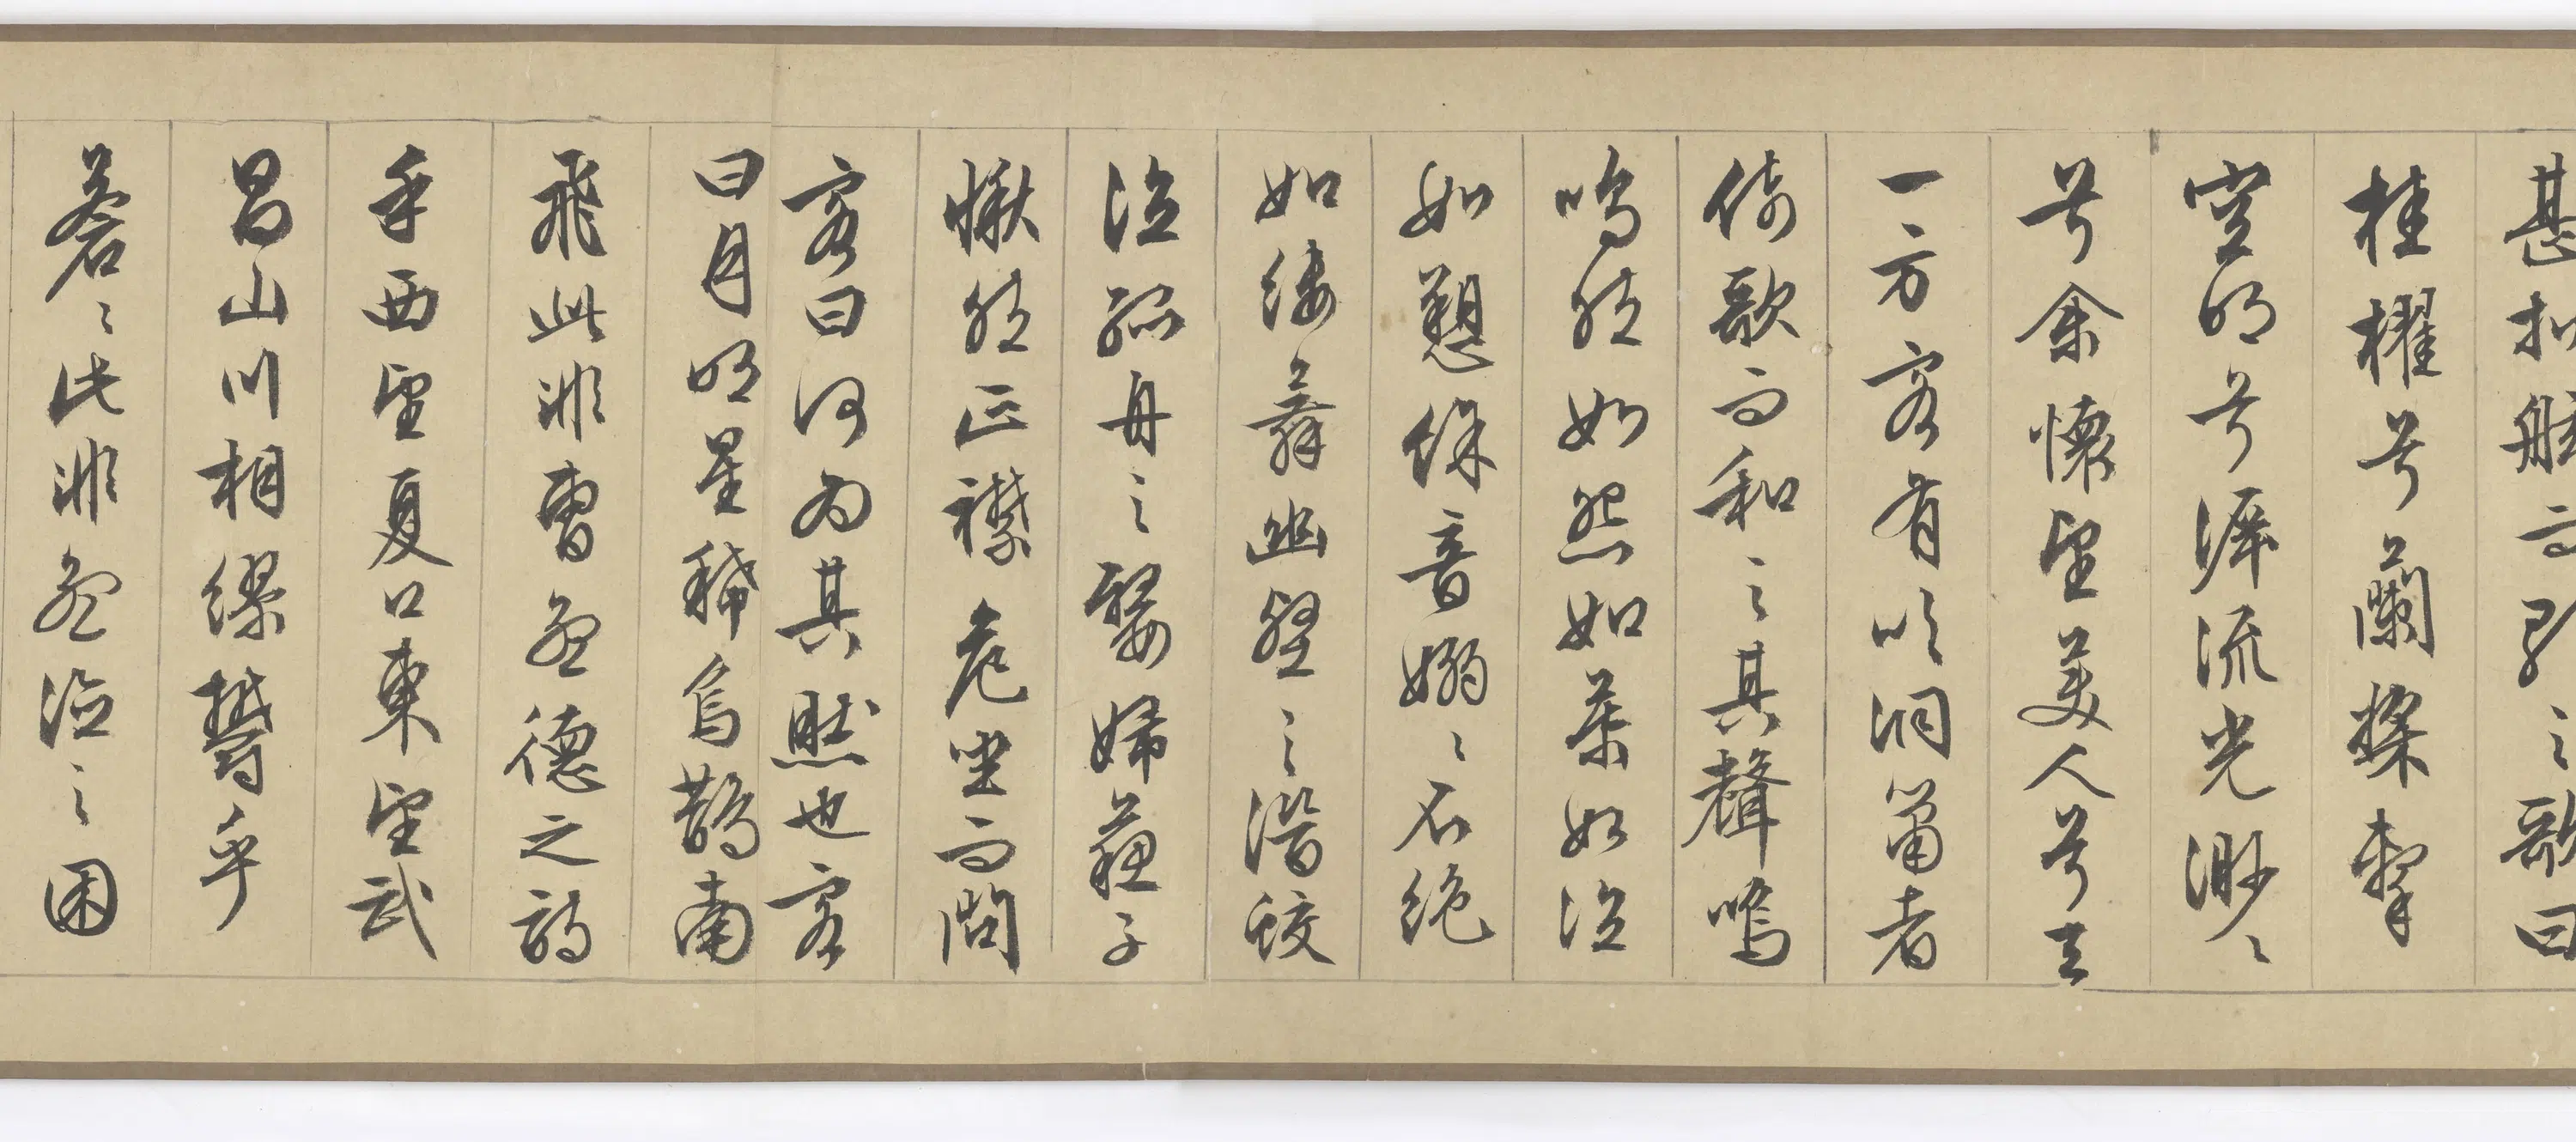 甚扣舷而歌之歌曰
桂櫂兮蘭槳擊
空明兮泝流光渺〻
兮余懷望美人兮天
一方客有吹洞簫者
倚歌而和之其聲嗚
嗚然如怨如慕如泣
如愬餘音嫋〻不絕
如縷舞幽壑之潛蛟
泣孤舟之嫠婦蘇子
愀然正襟危坐而問
客曰何為其然也客
曰月明星稀烏鵲南
飛此非曹孟德之詩
乎西望夏口東望武
昌山川相繆鬱乎
蒼〻此非孟德泣之困